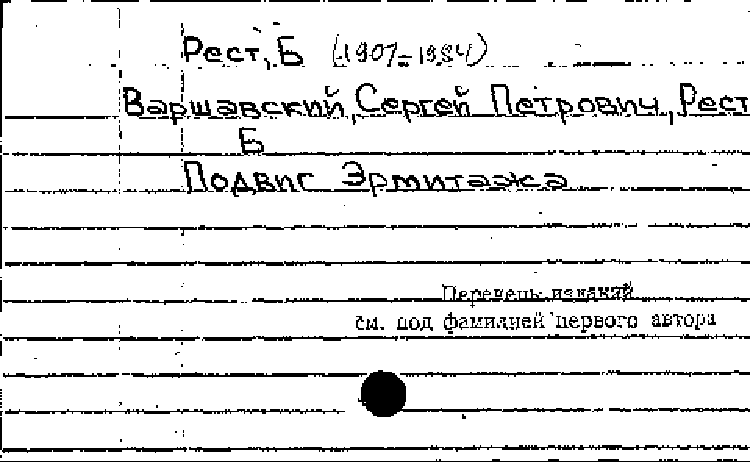 Рест, Б (1907-1984)
Варшавский, Сергей Петрович, Рест
Б
Подвиг Эрмитажа
Перечень изданий
см. под фамилией первого автора